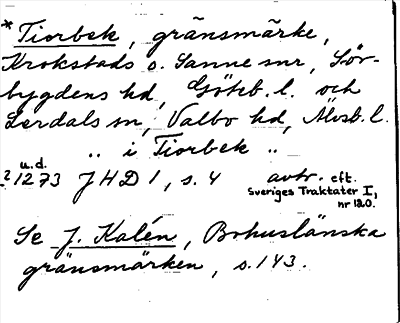 * Tiorbek, gränsmärke,
Krokstads o. Sanne snr, Sör-
bygdens hd, Göteb. l. och
Lerdals sn, Valbo hd, Älvsb. l.
„ i Tiorbek „
u.d.
? 1273 JHD 1, s. 4 avtr. eft.
Sveriges Traktater I,
nr 120.
Se J. Kalén, Bohuslänska
gränsmärken, s. 143.